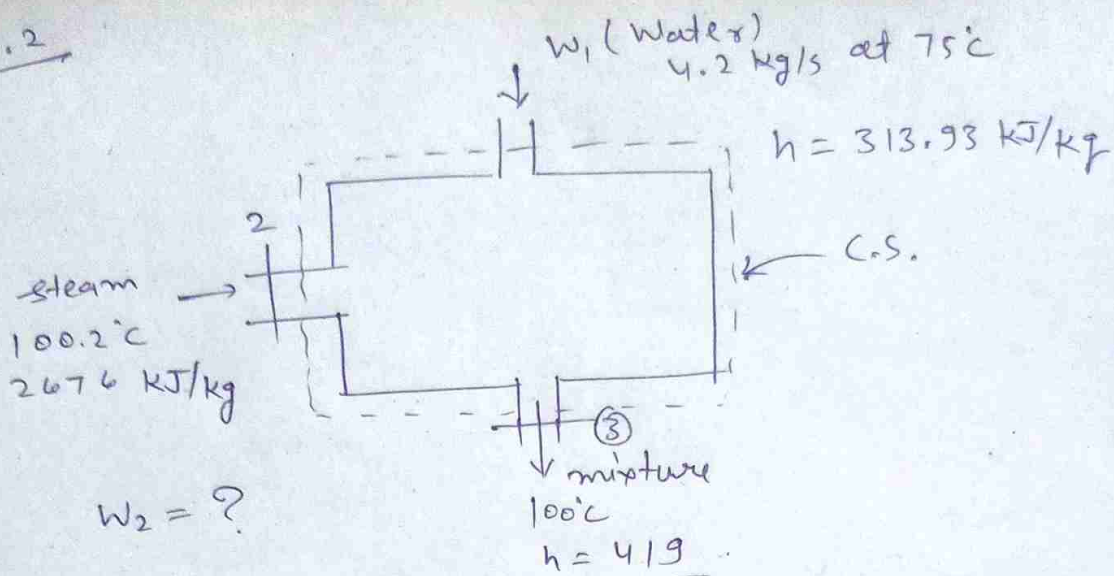 .2
W₁ (Water)
4.2 kg/s at 75°C
h = 313.93 kJ/kg
2
C.S.
steam
100.2°C
2676 kJ/kg
③
mixture
100°C
h = 419
W₂ = ?